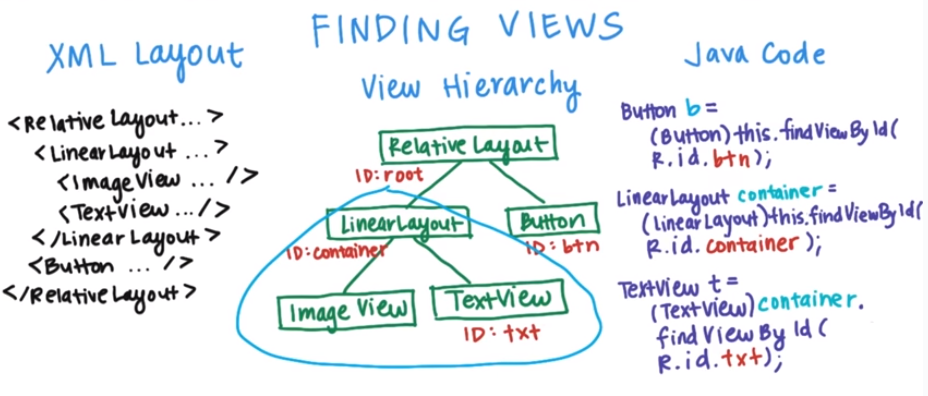 FINDING VIEWS
XML Layout
<Relative Layout... >
<LinearLayout ... >
<ImageView ... />
<TextView .../>
</Linear Layout >
<Button ... />
</Relative Layout>
View Hierarchy
Relative Layout
ID: root
LinearLayout
Button
ID: container
ID: btn
Image View
TextView
ID: txt
Java Code
Button b =
(Button) this.findViewById(
R.id.btn);
LinearLayout container =
(LinearLayout)this.findViewById(
R.id.container);
TextView t =
(TextView) container.
findViewById(
R.id.txt);